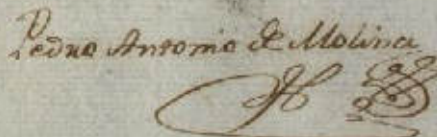 Pedro Antonio de Molina